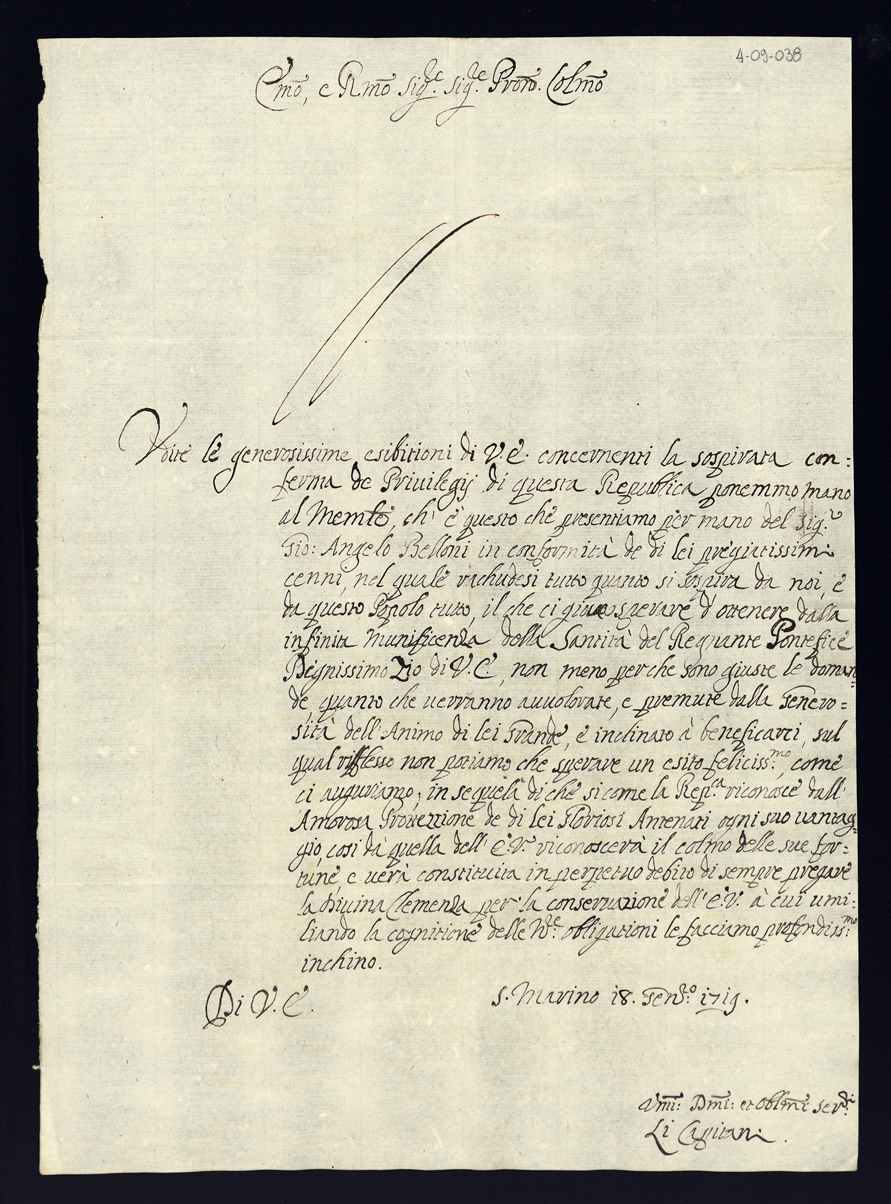 4-09-038
Em̃o, e Rm̃o Sig.re Sig.re Proñ. Colm̃o
Vdite le generosissime esibitioni di V.E. concernenti la sospirata con:
ferma de Priuilegij di questa Republica ponemmo mano
al Memle, ch' è questo che presentiamo per mano del Sig.r
Gio: Angelo Belloni in conformità de di lei pregiatissimi
cenni, nel quale rachudesi tutto quanto si sospira da noi, e
da questo Popolo tutto, il che ci gioua sperare d'ottenere dalla
infinita Munificenza della Santità del Regnante Pontefice
Degnissimo Zio di V.E, non meno perche sono giuste le doman:
de, quanto che uerranno auualorate, e premute dalla Genero:
sità dell'Animo di lei Grande, e inclinato à beneficarci, sul
qual riflesso non potiamo che sperare un esito feliciss.mo, come
ci auguriamo; in sequela di che si come la Rep.ca riconosce dall'
Amorosa Protezzione de di lei Gloriosi Antenati ogni suo uantag:
gio, cosi da quella dell'E.V. riconoscerà il colmo delle sue for:
tune, e uerà constituita in perpetuo debito di sempre pregare
la diuina Clemenza per la conseruazione dell'E.V. à cui umi:
liando la cognitione delle N.re obligationi le facciamo profondiss.mo
inchino.
Di V.E.
S. Marino 18. Gen.ro 1719.
Vm̃i: Dm̃i: et Oblm̃i Ser.di
Li Capitani.